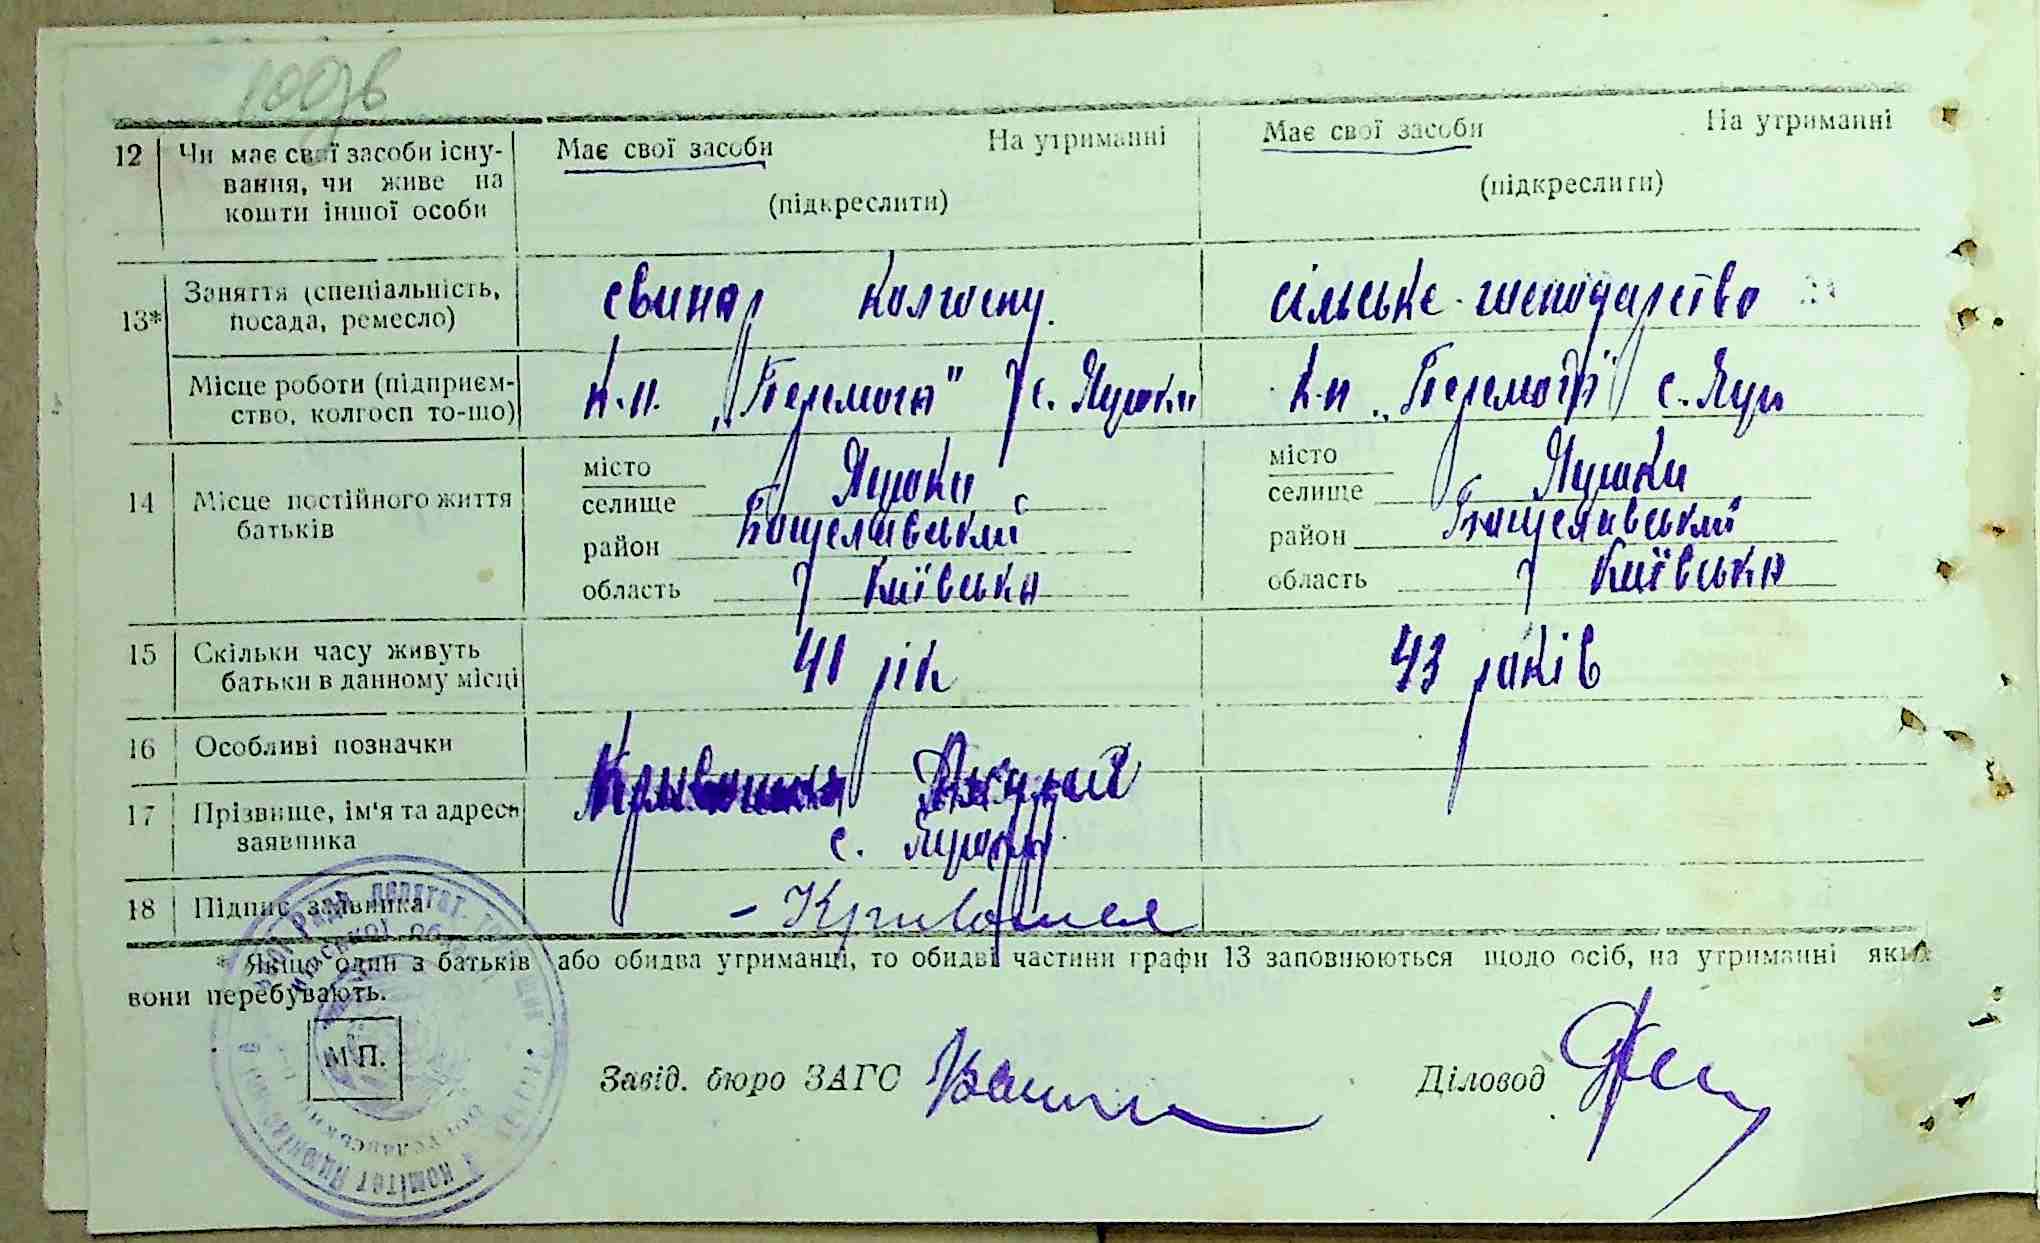 100зв
12 Чи має свої засоби існу- Має свої засоби На утриманні Має свої засоби На утриманні
вання, чи живе на
кошти іншої особи (підкреслити) (підкреслити)
13* Заняття (спеціальність, свинар колгоспу. сільське господарство
посада, ремесло)
Місце роботи (підприєм- к.п. „Перемога" с. Яцюки к.п „Перемога" с. Яцю
ство, колгосп то-що)
місто місто
14 Місце постійного життя селище Яцюки селище Яцюки
батьків район Богуславський район Богуславський
область Київська область Київська
15 Скільки часу живуть 41 рік 43 років
батьки в данному місці
16 Особливі позначки
17 Прізвище, ім'я та адреса
заявника с.
18 Підпис заявника
* Якщо один з батьків або обидва утриманці, то обидві частини графи 13 заповнюються щодо осіб, на утриманні яких
вони перебувають.
М.П. Завід. бюро ЗАГС Діловод